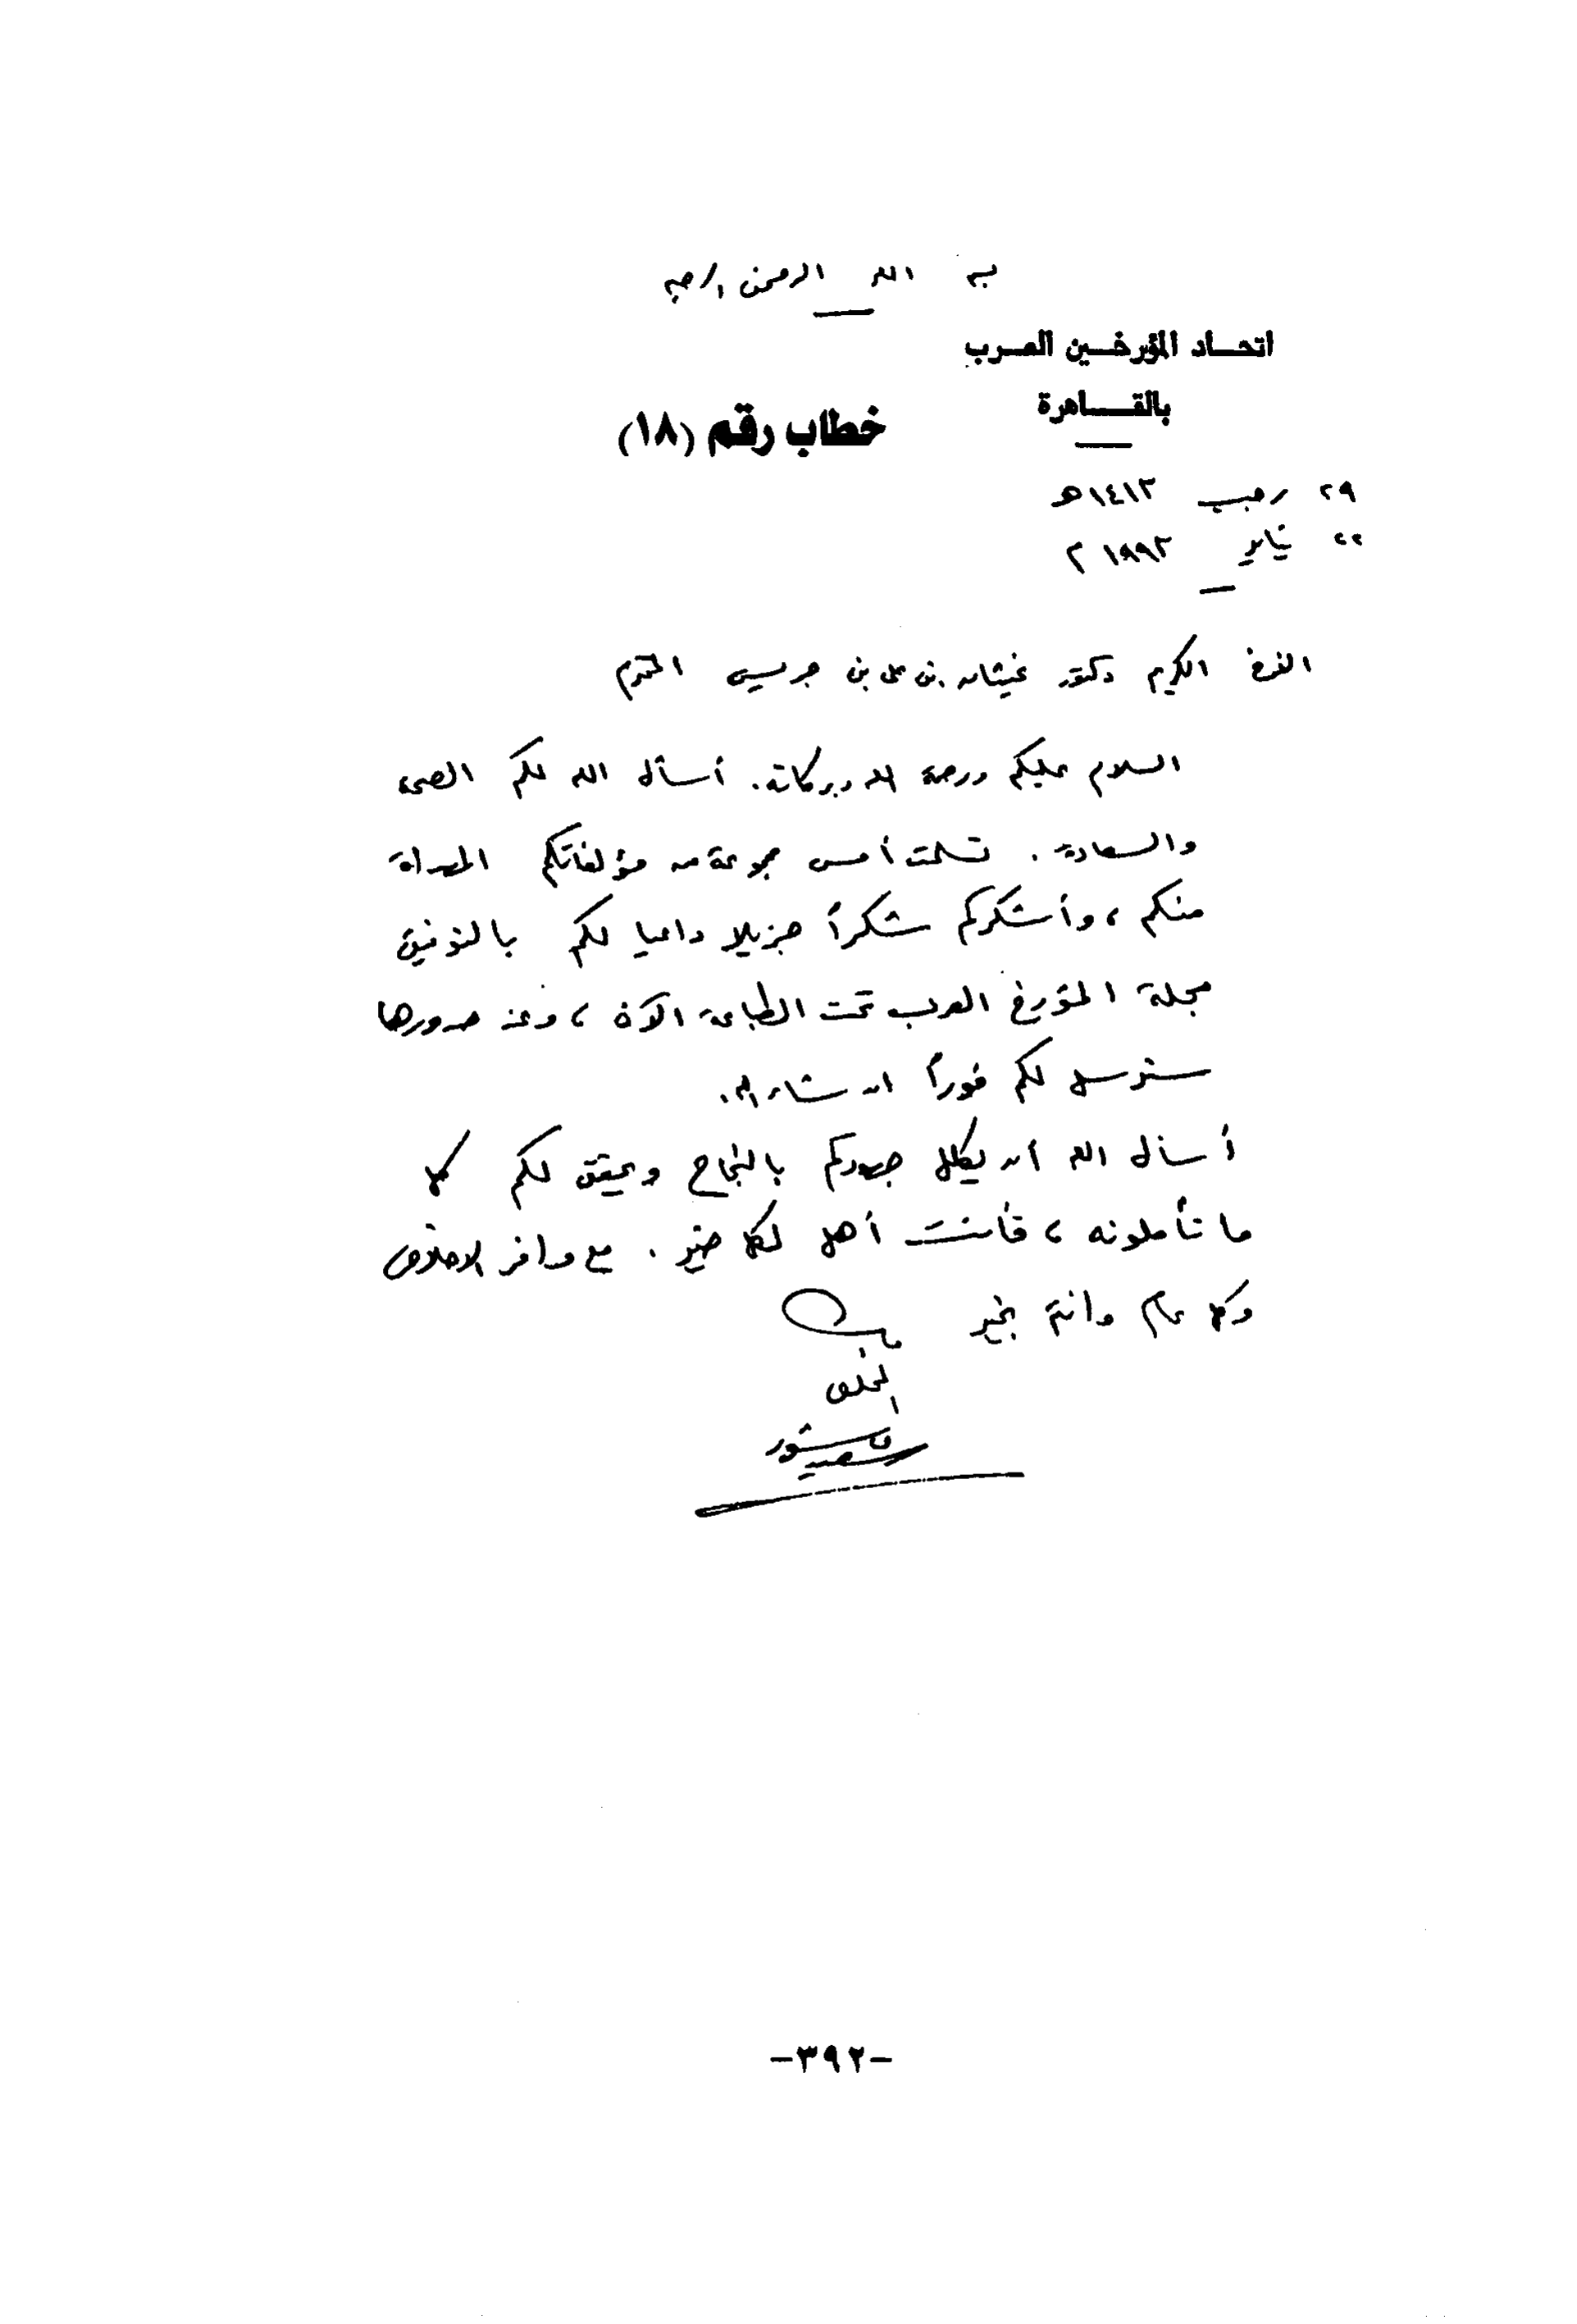 بسم الله الرحمن الرحيم
اتحاد المؤرخين العرب
بالقاهرة
خطاب رقم (١٨)
٢٩ رجب ١٤١٣هـ
٢٢ يناير ١٩٩٣ م
الأخ الكريم دكتور غيثان بن على بن جريس المحترم
السلام عليكم ورحمة الله وبركاته. أسأل الله لكم الصحة
والسعادة. تسلمت أمس مجموعة من مؤلفاتكم المهداة
منكم، وأشكركم شكراً جزيلا داعيا لكم بالتوفيق
مجلة المؤرخ العربى تحت الطباعة الآن، وعند صدورها
سنرسل لكم فوراً ان شاء الله.
أسأل الله أن يكلل جهودكم بالنجاح ويحقق لكم كل
ما تأملونه، فأنت أهل لكل خير. مع وافر الاخلاص
وكل عام وانتم بخير
المخلص
سعيد عاشور
-٣٩٢-